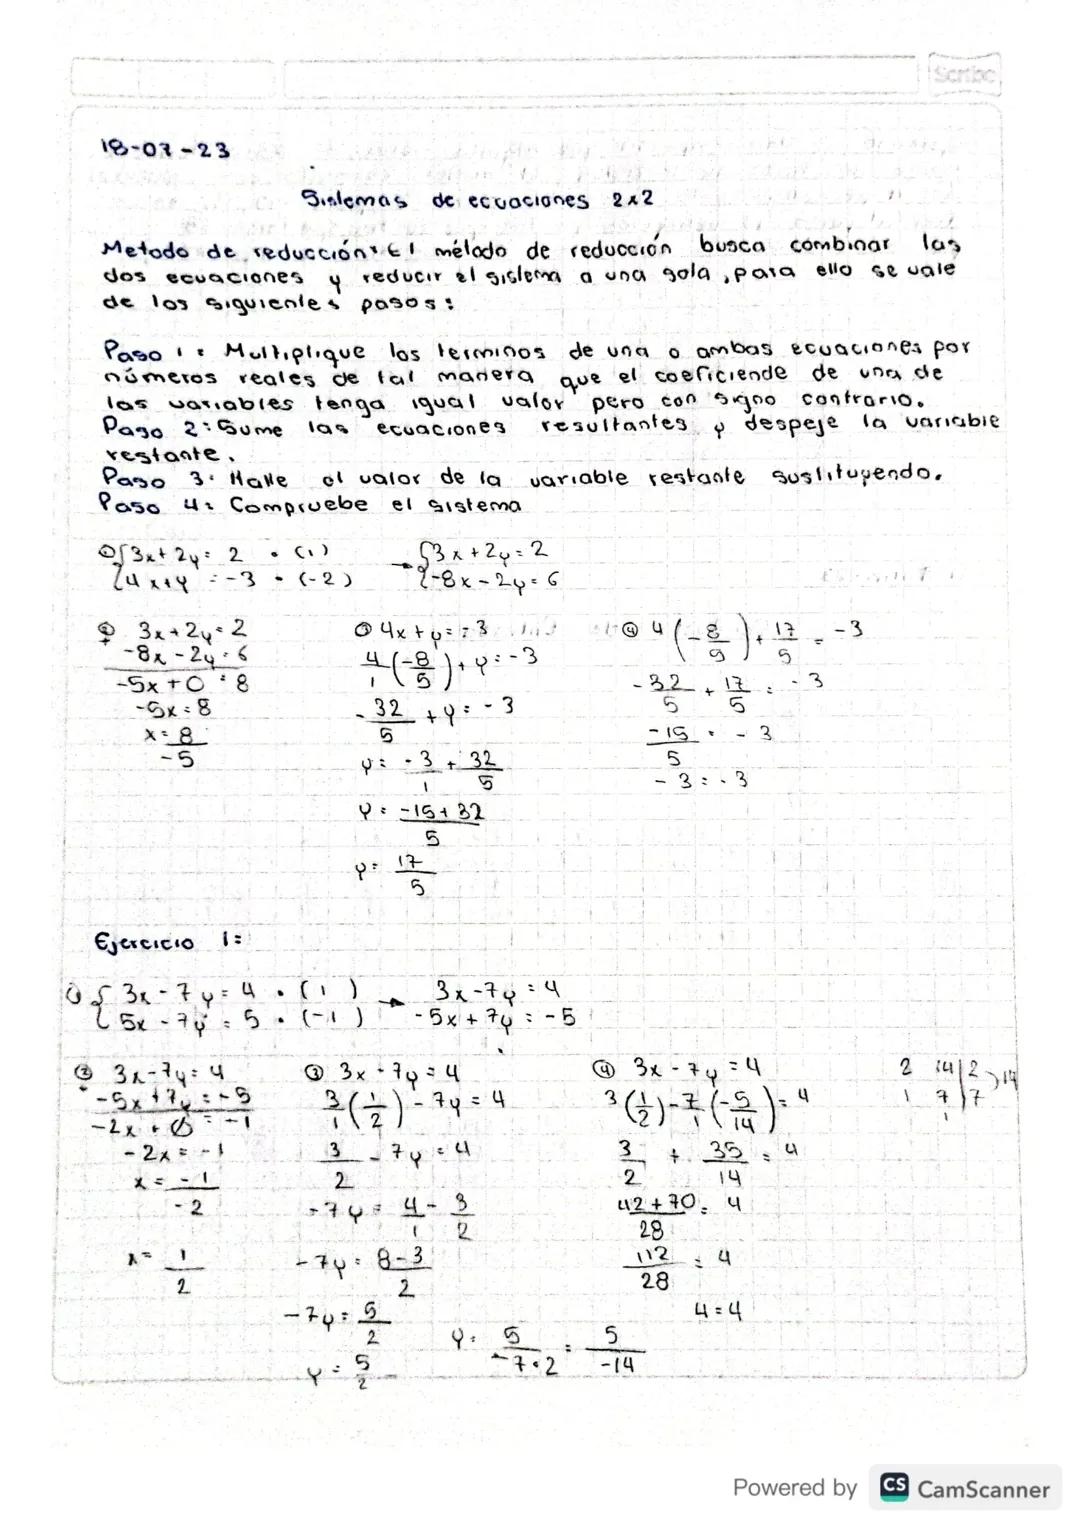 Scribe
18-07-23
Sistemas de ecuaciones 2x2
Metodo de reducción: El método de reducción busca combinar las
dos ecuaciones y reducir el sistema a una sola, para ello se vale
de los siguientes pasos:
Paso 1: Multiplique los terminos de una o ambas ecuaciones por
números reales de tal manera que el coeficiende de una de
las variables tenga igual valor pero con signo contrario.
Paso 2: Sume las ecuaciones resultantes y despeje la variable
restante.
Paso 3: Halle el valor de la variable restante sustituyendo.
Paso 4: Compruebe el sistema
① { 3x + 2y = 2 • (1) → { 3x + 2y = 2
{ 4x + y = -3 • (-2) { -8x - 2y = 6
② 3x + 2y = 2
-8x - 2y = 6
-5x + 0 = 8
-5x = 8
x = 8/-5
③ 4x + y = -3
4/1 (-8/5) + y = -3
-32/5 + y = -3
y = -3/1 + 32/5
y = -15 + 32/5
y = 17/5
④ 4 (-8/5) + 17/5 = -3
-32/5 + 17/5 = -3
-15/5 = -3
-3 = -3
Ejercicio 1:
① { 3x - 7y = 4 • (1) → 3x - 7y = 4
{ 5x - 7y = 5 • (-1) -5x + 7y = -5
② 3x - 7y = 4
-5x + 7y = -5
-2x + 0 = -1
-2x = -1
x = -1/-2
x = 1/2
③ 3x - 7y = 4
3/1 (1/2) - 7y = 4
3/2 - 7y = 4
-7y = 4/1 - 3/2
-7y = 8-3/2
-7y = 5/2
y = 5/2
y = 5/-7•2 = 5/-14
④ 3x - 7y = 4
3 (1/2) - 7/1 (-5/14) = 4
3/2 + 35/14 = 4
42 + 70/28 = 4
112/28 = 4
4 = 4
2 14 | 2 ) 14
1 7 | 7
1
Powered by CS CamScanner